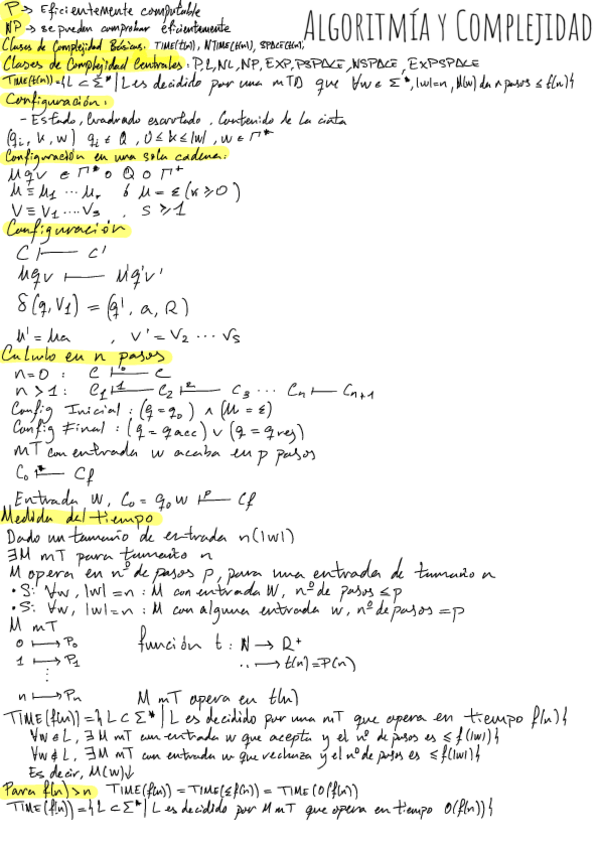 ALGORITMÍA Y COMPLEJIDAD
P → Eficientemente computable
NP → se pueden comprobar eficientemente
Clases de Complejidad Básicas: TIME(t(n)), NTIME(t(n)), SPACE(t(n))
Clases de Complejidad Centrales: P, L, NL, NP, EXP, PSPACE, NSPACE, EXPSPACE
TIME(t(n)) = {L ⊂ Σ* | L es decidido por una mTD que ∀w ∈ Σ*, |w|=n, M(w) da n pasos ≤ t(n)}
Configuración:
- Estado, Cuadrado escaneado, Contenido de la cinta
(qi, k, w) qi ∈ Q, 0 ≤ k ≤ |w|, w ∈ Γ*
Configuración en una sola cadena:
μqv ∈ Γ* ∘ Q ∘ Γ+
μ ≡ μ1 ... μr ó μ = ε (r ≥ 0)
V ≡ V1 ... Vs, s ≥ 1
Configuración
C ⊢ C'
μqv ⊢ μ'q'v'
δ(q, V1) = (q', a, R)
μ' = μa , v' = V2 ... Vs
Calculo en n pasos
n=0 : C ⊢ C
n>1 : C1 ⊢ C2 ⊢ C3 ... Cn ⊢ Cn+1
Config Inicial : (q = q0) ∧ (μ = ε)
Config Final : (q = qacc) ∨ (q = qrej)
mT con entrada w acaba en p pasos
C0 ⊢ Cf
Entrada W, C0 = q0 w ⊢p Cf
Medida del tiempo
Dado un tamaño de entrada n(|w|)
∃M mT para tamaño n
M opera en nº de pasos p, para una entrada de tamaño n
• Si ∀w, |w|=n : M con entrada W, nº de pasos ≤ p
• Si ∀w, |w|=n : M con alguna entrada w, nº de pasos = p
M mT
0 ↦ P0 función t : N → R+
1 ↦ P1 .. ↦ t(n)=P(n)
⋮
n ↦ Pn M mT opera en t(n)
TIME(f(n)) = {L ⊂ Σ* | L es decidido por una mT que opera en tiempo f(n)}
∀w ∈ L, ∃M mT con entrada w que acepta y el nº de pasos es ≤ f(|w|)
∀w ∉ L, ∃M mT con entrada w que rechaza y el nº de pasos es ≤ f(|w|)
Es decir, M(w)↓
Para f(n) > n TIME(f(n)) = TIME(≤f(n)) = TIME(O(f(n))
TIME(f(n)) = {L ⊂ Σ* | L es decidido por M mT que opera en tiempo O(f(n))}